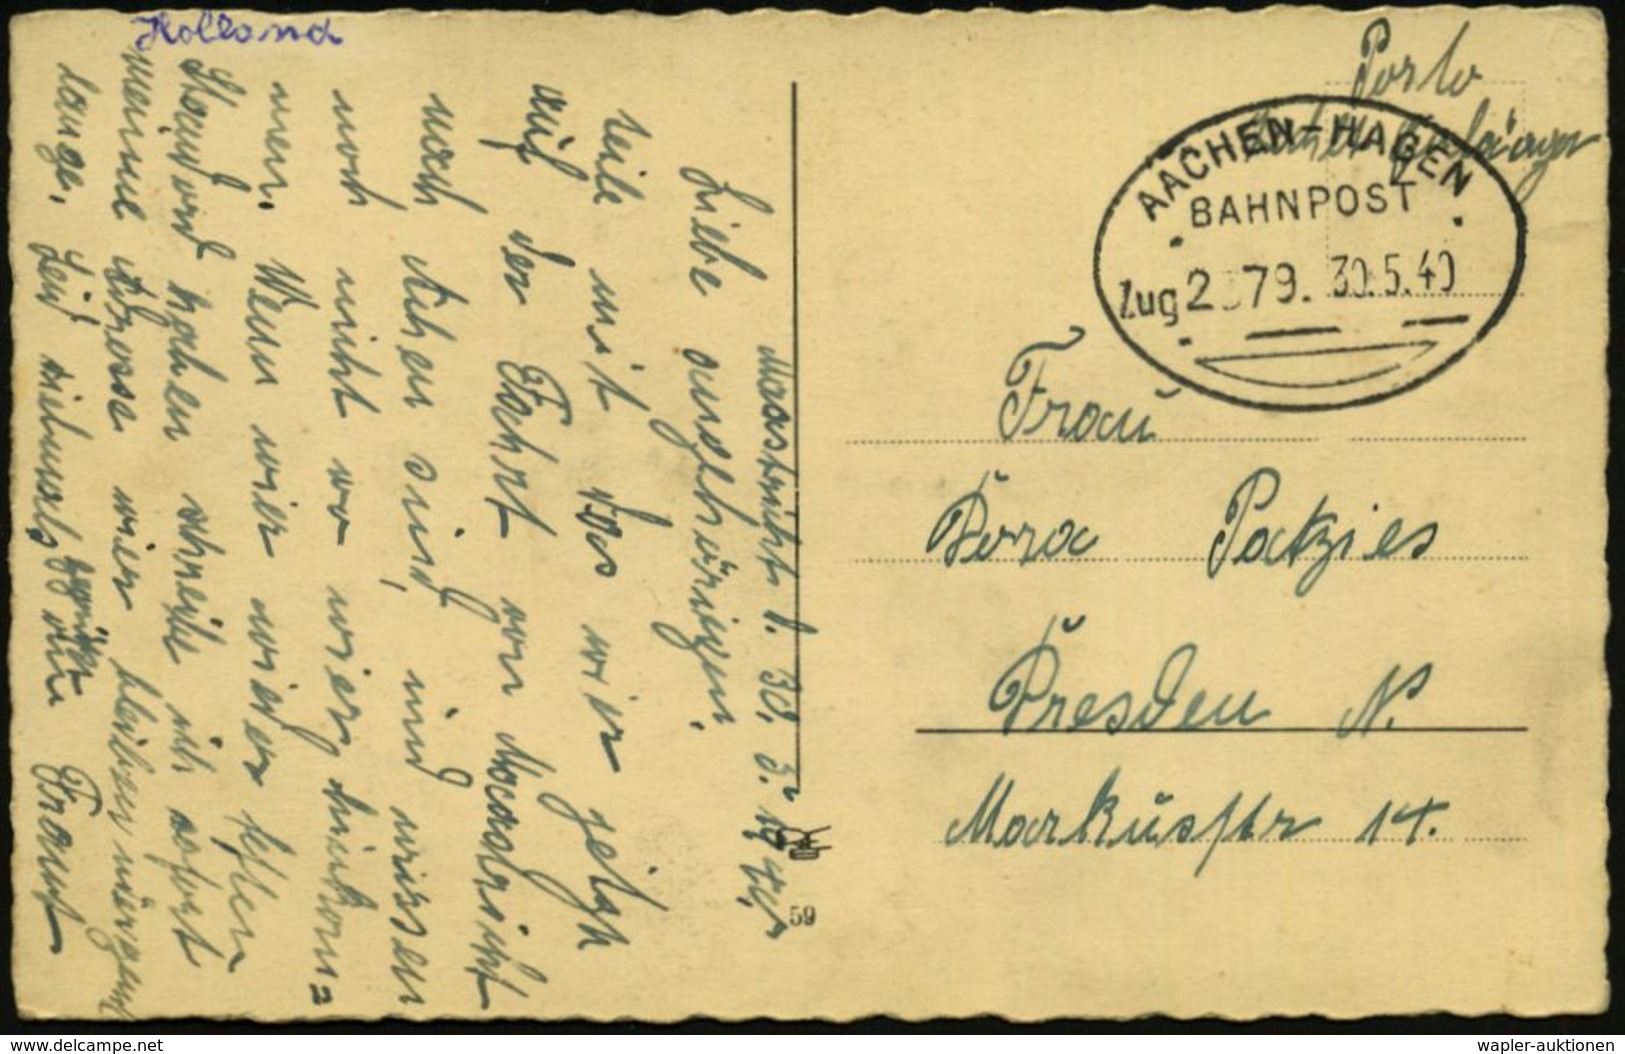 Holland
Mastricht d. 30. 5. 1940
Liebe angehörigen!
teile mit das wir jetzt
auf der Fahrt von Maastricht
nach Achen sind, und wissen
noch nicht wo wier hinkom=
men. Wenn wier wieder festen
Standord haben schreibe ich sofort
meine Adresse wier bleiben nirgends
lange. Seid vielmals gegrüßt von Franz
Porto
Empfänger
AACHEN-HAGEN
BAHNPOST
Zug 2 79. 30.5.40
Frau
Dora Patzies
Dresden N.
Markusstr 14.
59
delcampe.net
wapler-auktionen